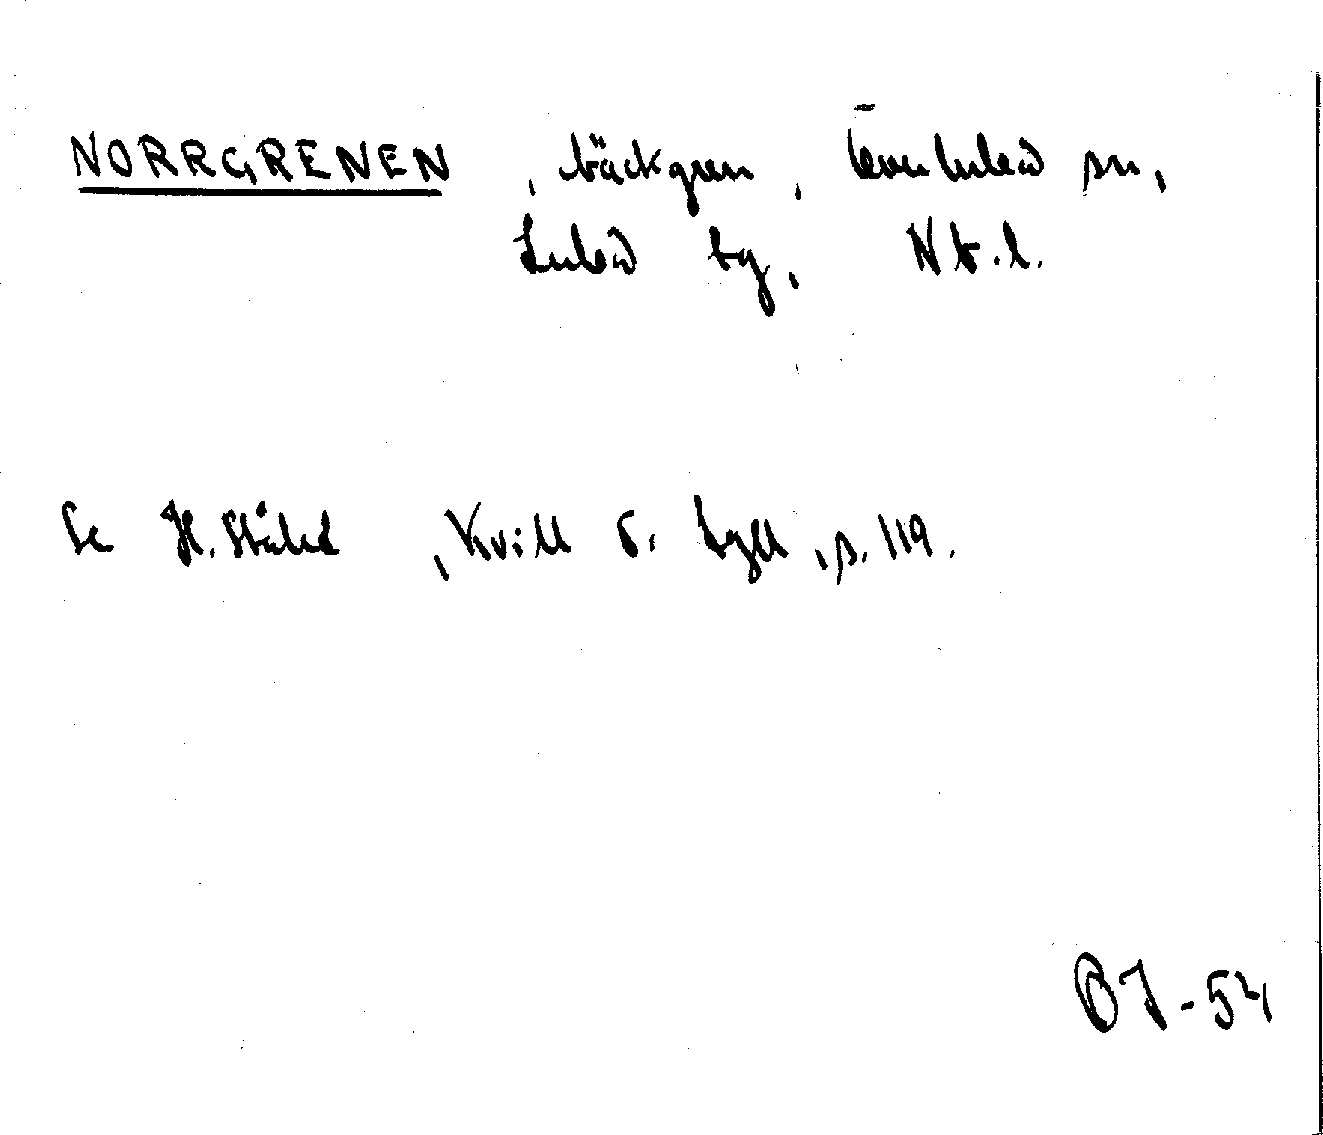 NORRGRENEN, bäckgren, Överluleå sn,
Luleå tg, Nb.l.
Se H. Ståhl, Kvill o. tyll, s. 119.
BJ-54